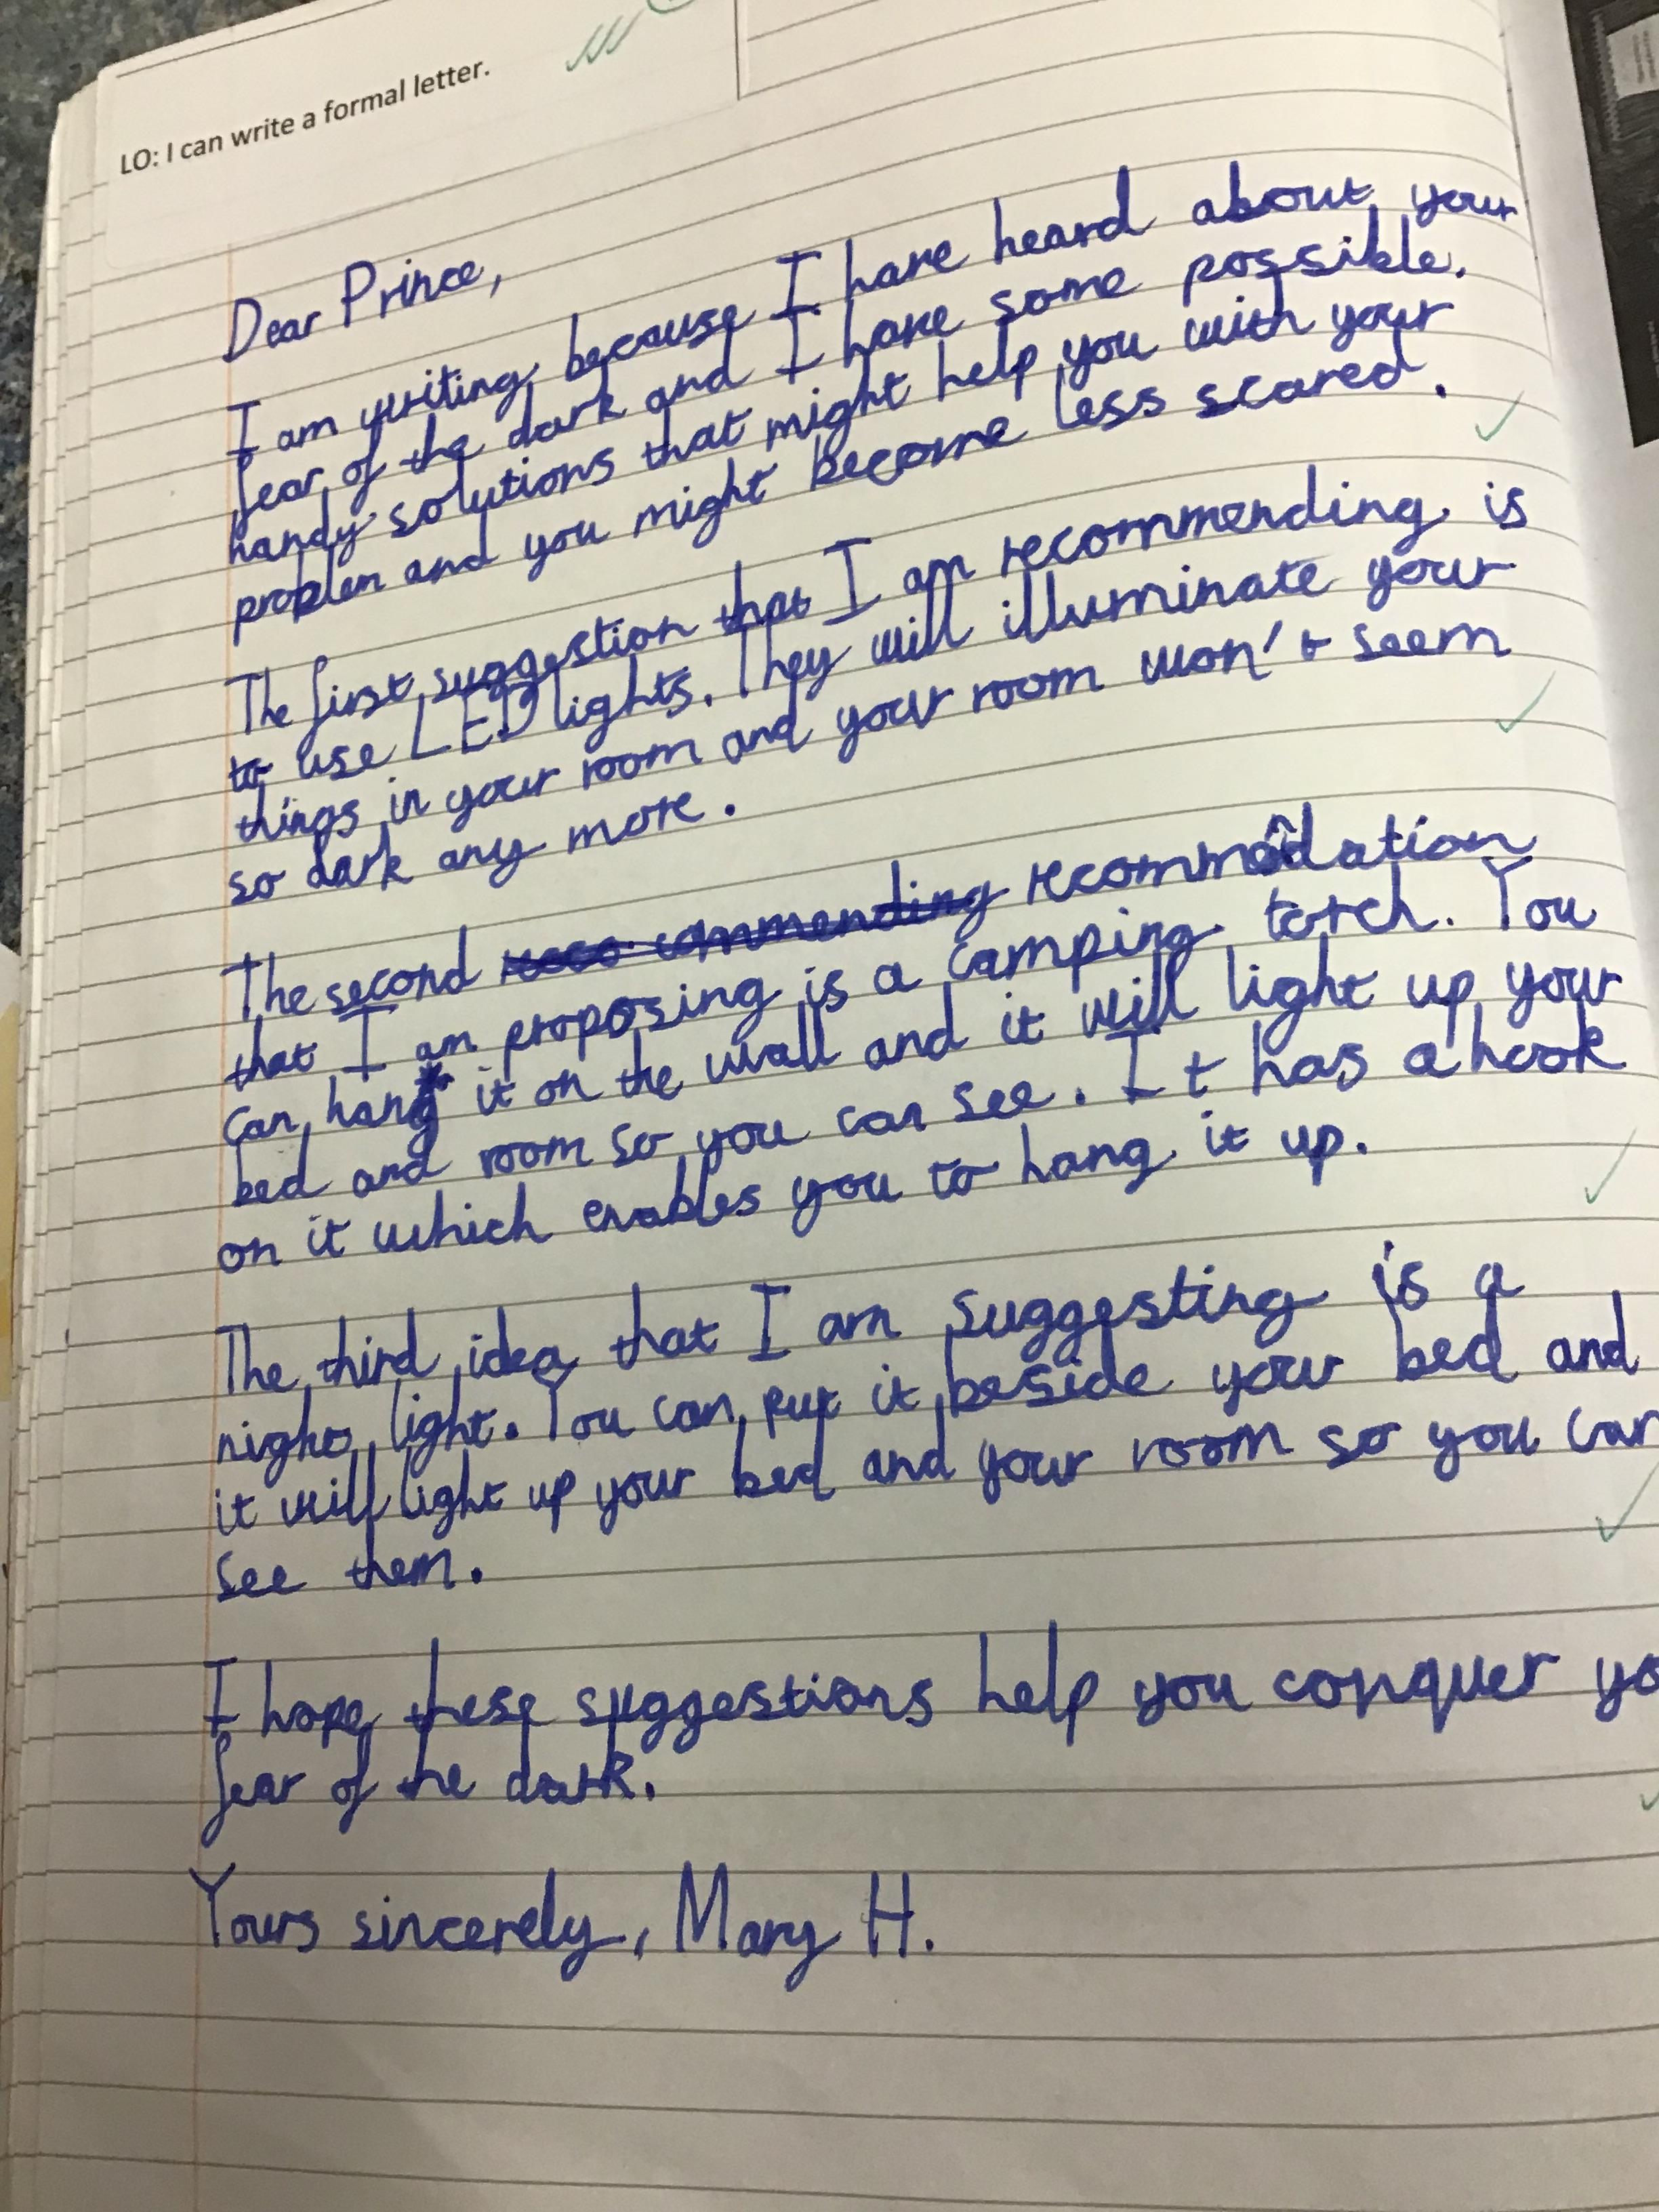 LO: I can write a formal letter.
Dear Prince,
I am writing because I have heard about your
fear of the dark and I have some possible.
handy solutions that might help you with your
problem and you might become less scared.
The first suggestion that I am recommending is
to use LED lights. They will illuminate your
things in your room and your room won't seem
so dark any more.
The second recommendation
that I am proposing is a camping torch. You
can hang it on the wall and it will light up your
bed and room so you can see. It has a hook
on it which enables you to hang it up.
The third idea that I am suggesting is a
night light. You can put it beside your bed and
it will light up your bed and your room so you can
see them.
I hope these suggestions help you conquer yo
fear of the dark.
Yours sincerely, Mary H.